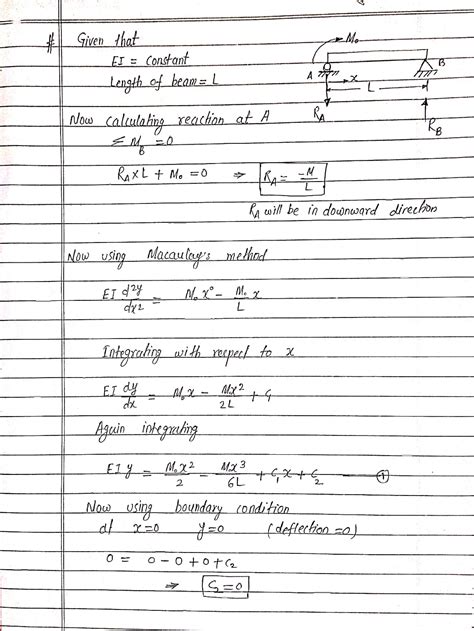 # Given that
EI = constant
Length of beam = L
M₀
A
B
x
L
R_A
R_B
Now calculating reaction at A
≤ M_B = 0
R_A × L + M₀ = 0 ⇒ R_A = -M/L
R_A will be in downward direction
Now using Macaulay's method
EI d²y/dx² = M₀x⁰ - M₀/L x
Integrating with respect to x
EI dy/dx = M₀x - Mx²/2L + C₁
Again integrating
EI y = M₀x²/2 - Mx³/6L + C₁x + C₂ — ①
Now using boundary condition
at x=0 y=0 (deflection=0)
0 = 0-0+0+C₂
⇒ C₂=0